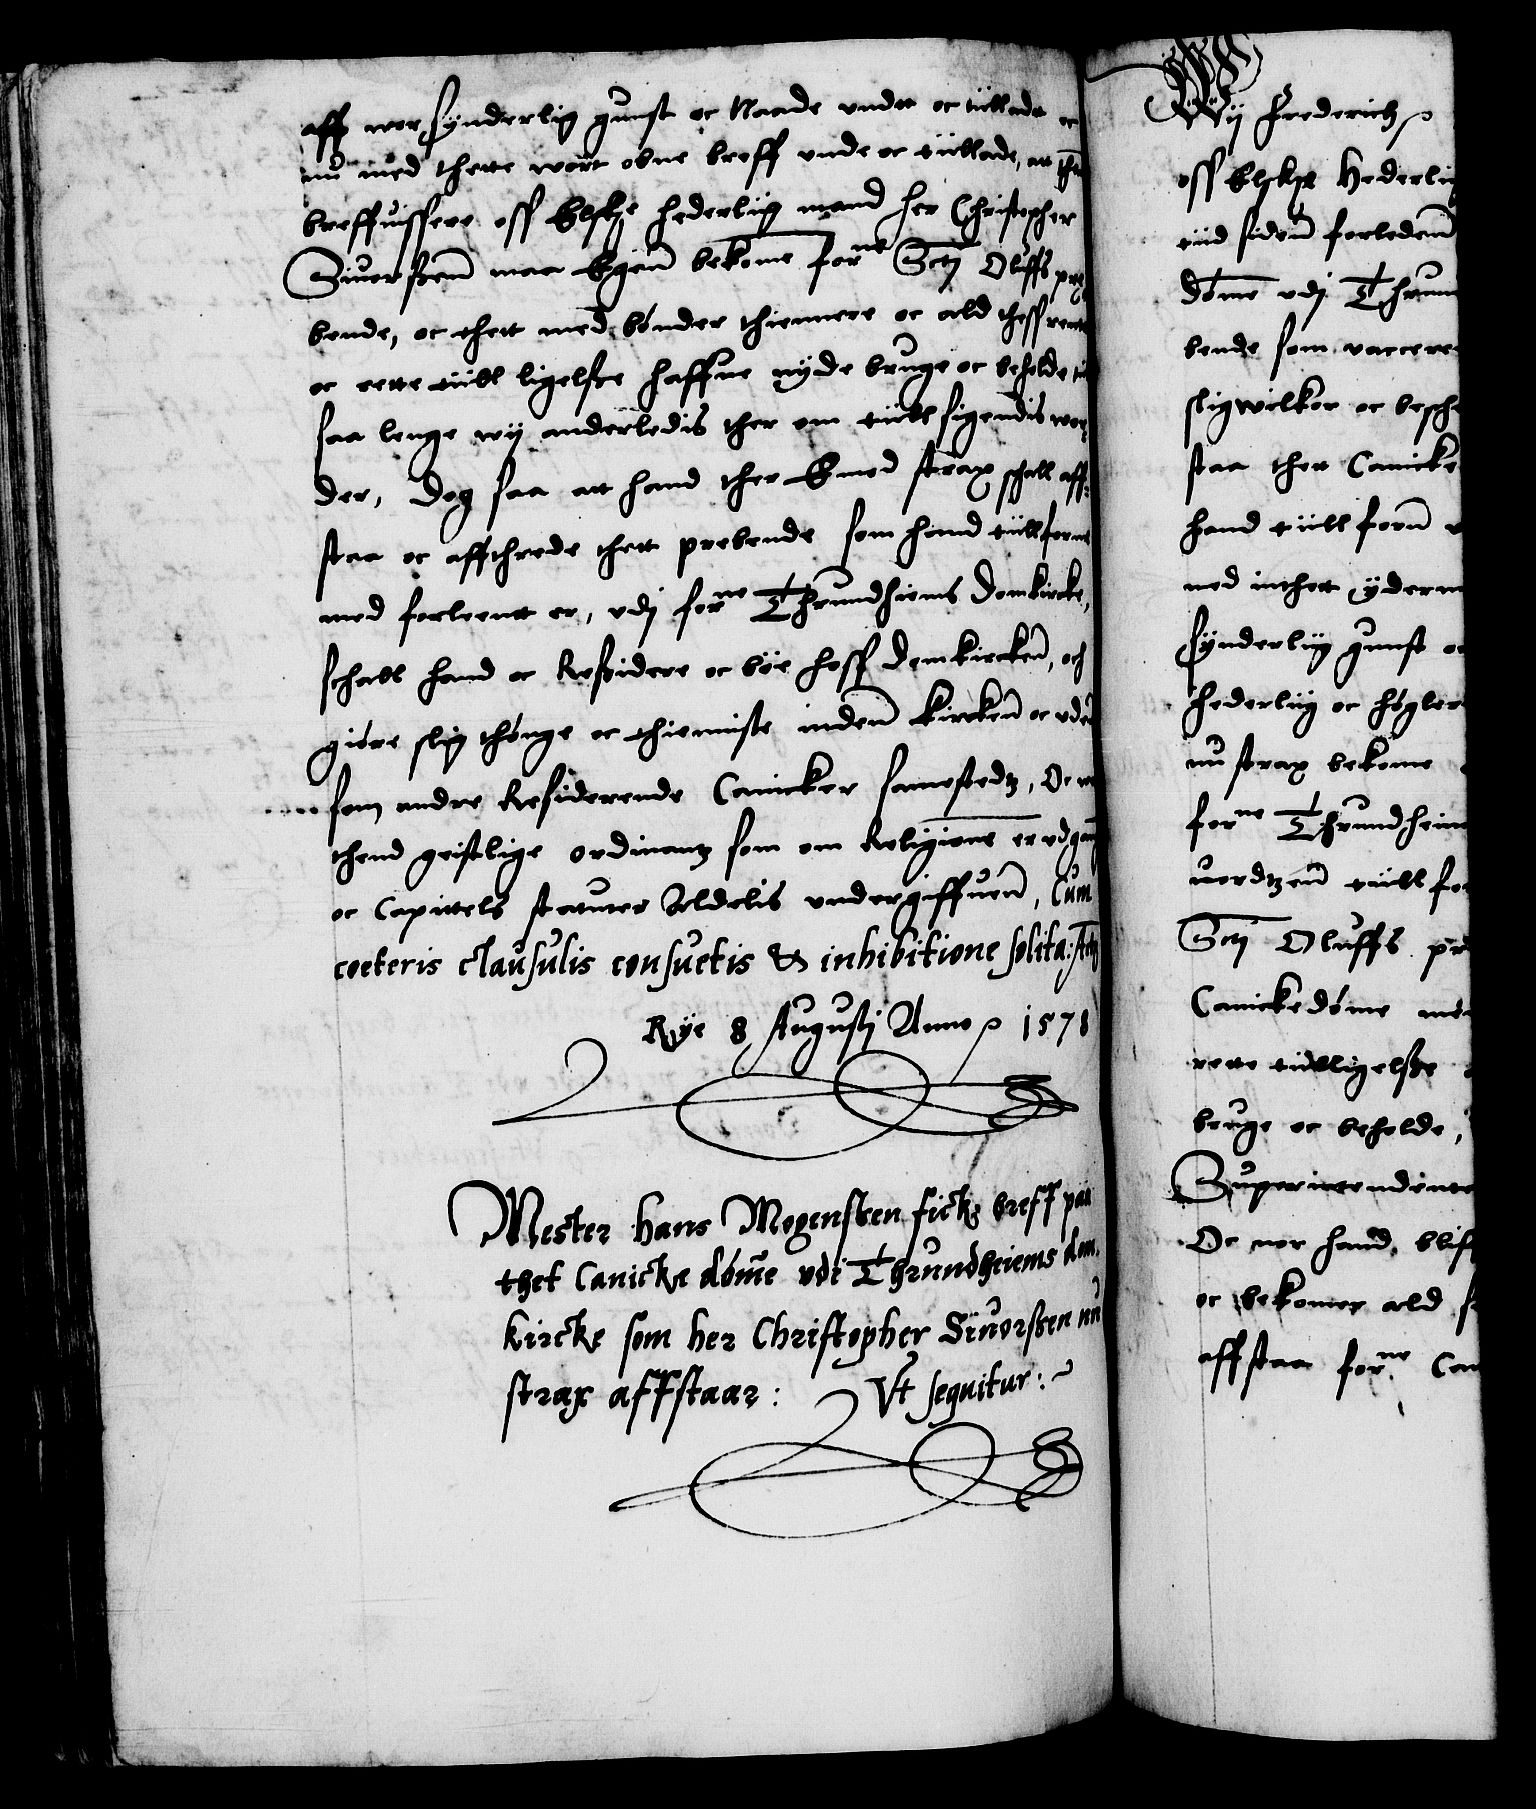 aff wor synderlig gunst oc Naade undt oc tillade oc
nu med thette wort obne breff unde oc tillade, att thend
breffuissere oss Elskze hederlig mand her Christopher
Siuorssenn maa Egenn bekome forne Scti Oluffs pre
bende, oc thett med bønder thiennere oc ald thess rente
oc rette till ligelsse haffue nyde bruge oc beholde
saa lenge wij anderledis ther om till sigendis wor
der, Dog saa att hand ther Emod strax schall aff:
staa oc affthrede thett prebende som hand till forne
med forleentt er, udj forne Thrundhiems Domkircke,
schall hand oc Residere oc boe hoss domkircken, och
giøre slig thønge oc thienniste inden kircken oc uden
som andre Residerende Canicker samestedtz, Oc
thend geistlige ordinantz som om Religione er udgan
oc Capittels statuter Aldelis undergiffuen, Cum
coeteris clausulis consuetis & inhibitione solita: Actz
Rye 8 Augustj Anno 1578
Mester Hans Mogenssen fick breff paa
thet Canicke døme udi Thrundheiems dom.
kircke som her Christopher Siuorssen nu
strax affstaar: Ut sequitur:
Wij Frederich
oss Elskze Hederlig
tiid siden forledenn
døme udj Thrun
bende som vaccere
slig wilkor oc besche
staa thet Canicke
hand tiill forn
med inthet yderm
synderlig gunst oc
hederliig oc høgler
nu strax bekome
forne Thrundheim
uordtzenn tiill for
Scti Oluffs pre
Canickedøme me
rette tiilligelsse
bruge oc beholde,
Superintendente
Oc nor hand bliff
oc bekomer ald
affstaa forne Can